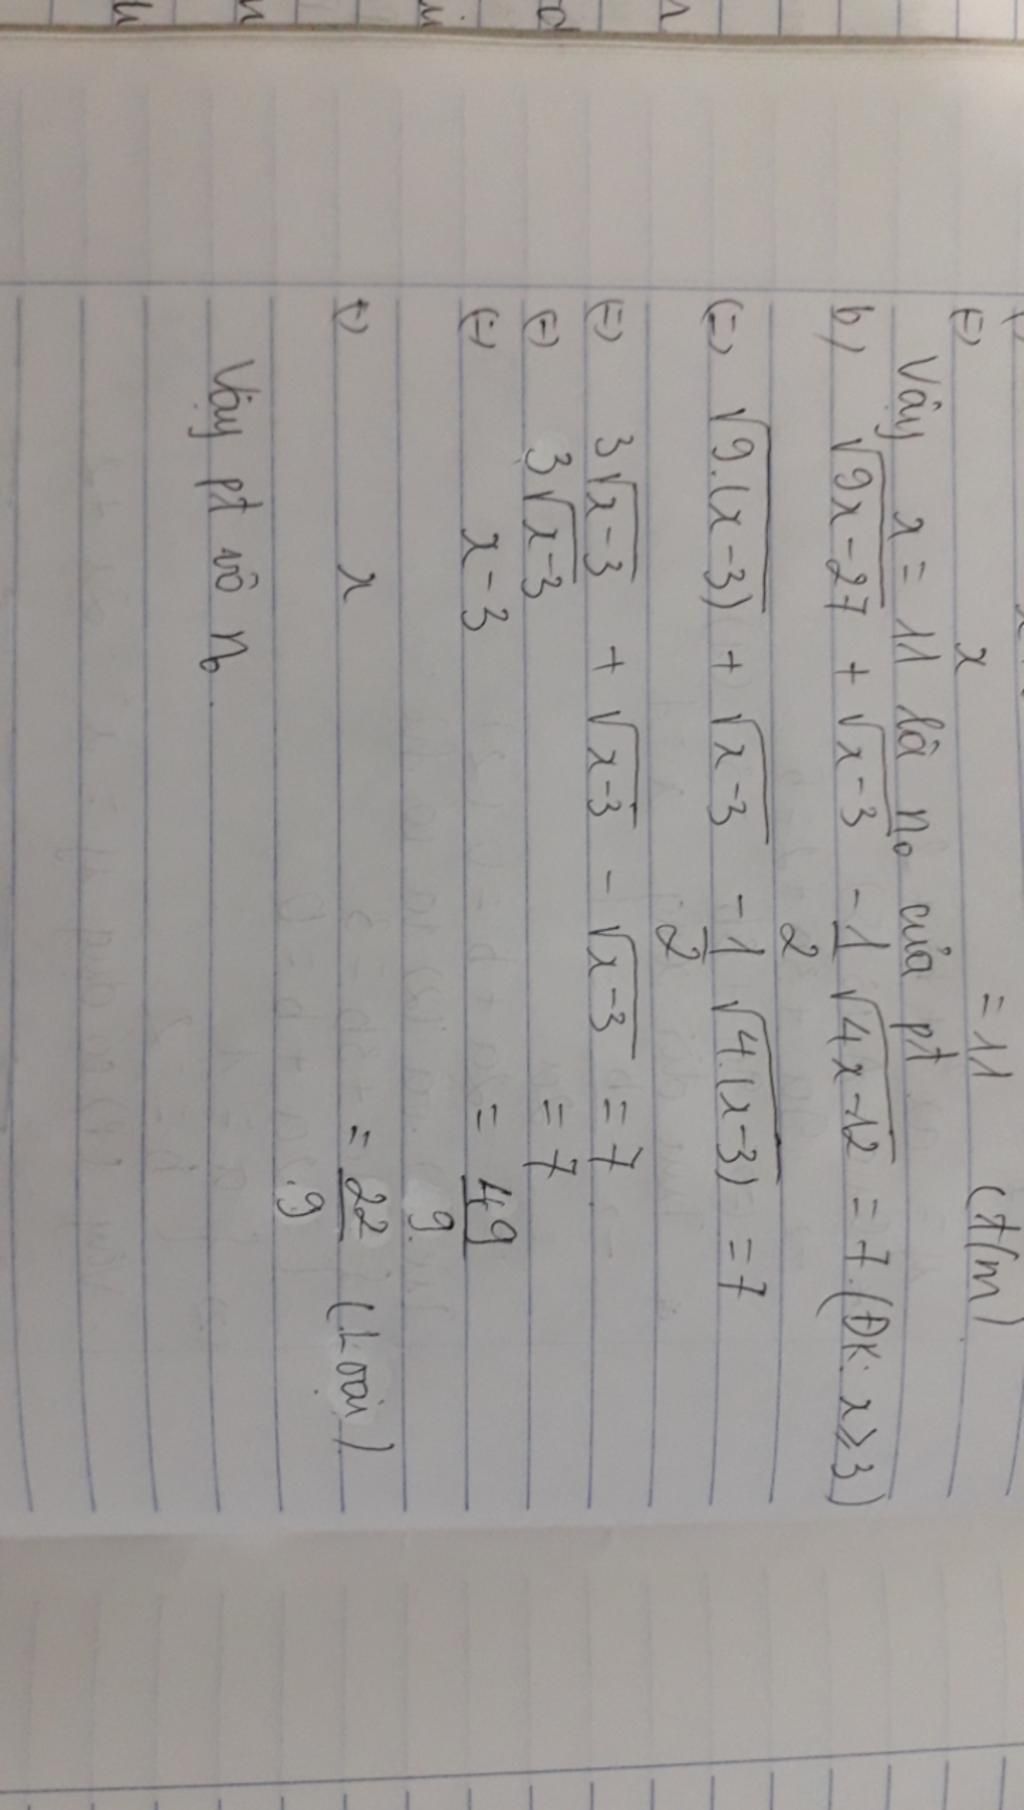 (=) x = 11 (t/m)
Vậy x = 11 là n₀ của pt
b) √(9x-27) + √(x-3) - 1/2 √(4x-12) = 7. (ĐK: x ≥ 3)
(=) √(9.(x-3)) + √(x-3) - 1/2 √(4.(x-3)) = 7
(=) 3√(x-3) + √(x-3) - √(x-3) = 7
(=) 3√(x-3) = 7
(=) x-3 = 49/9
(=) x = 22/9 (Loại)
Vậy pt vô n₀.